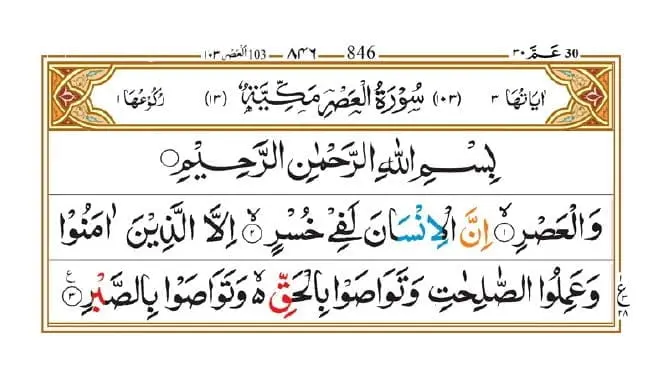 30 عَمَّ ٣٠ 846 ٨٤٦ 103 اَلْعَصْر ١٠٣
اٰيَاتُهَا ٣ (١٠٣) سُوْرَةُ الْعَصْرِ مَكِّيَّةٌ (١٣) رُكُوْعُهَا ١
بِسْمِ اللهِ الرَّحْمٰنِ الرَّحِيْمِ
وَالْعَصْرِ ۙ١ اِنَّ الْاِنْسَانَ لَفِيْ خُسْرٍ ۙ٢ اِلَّا الَّذِيْنَ اٰمَنُوْا
وَعَمِلُوا الصّٰلِحٰتِ وَتَوَاصَوْا بِالْحَقِّ ۙ۬ وَتَوَاصَوْا بِالصَّبْرِ ٣ ع
ع ٢٨